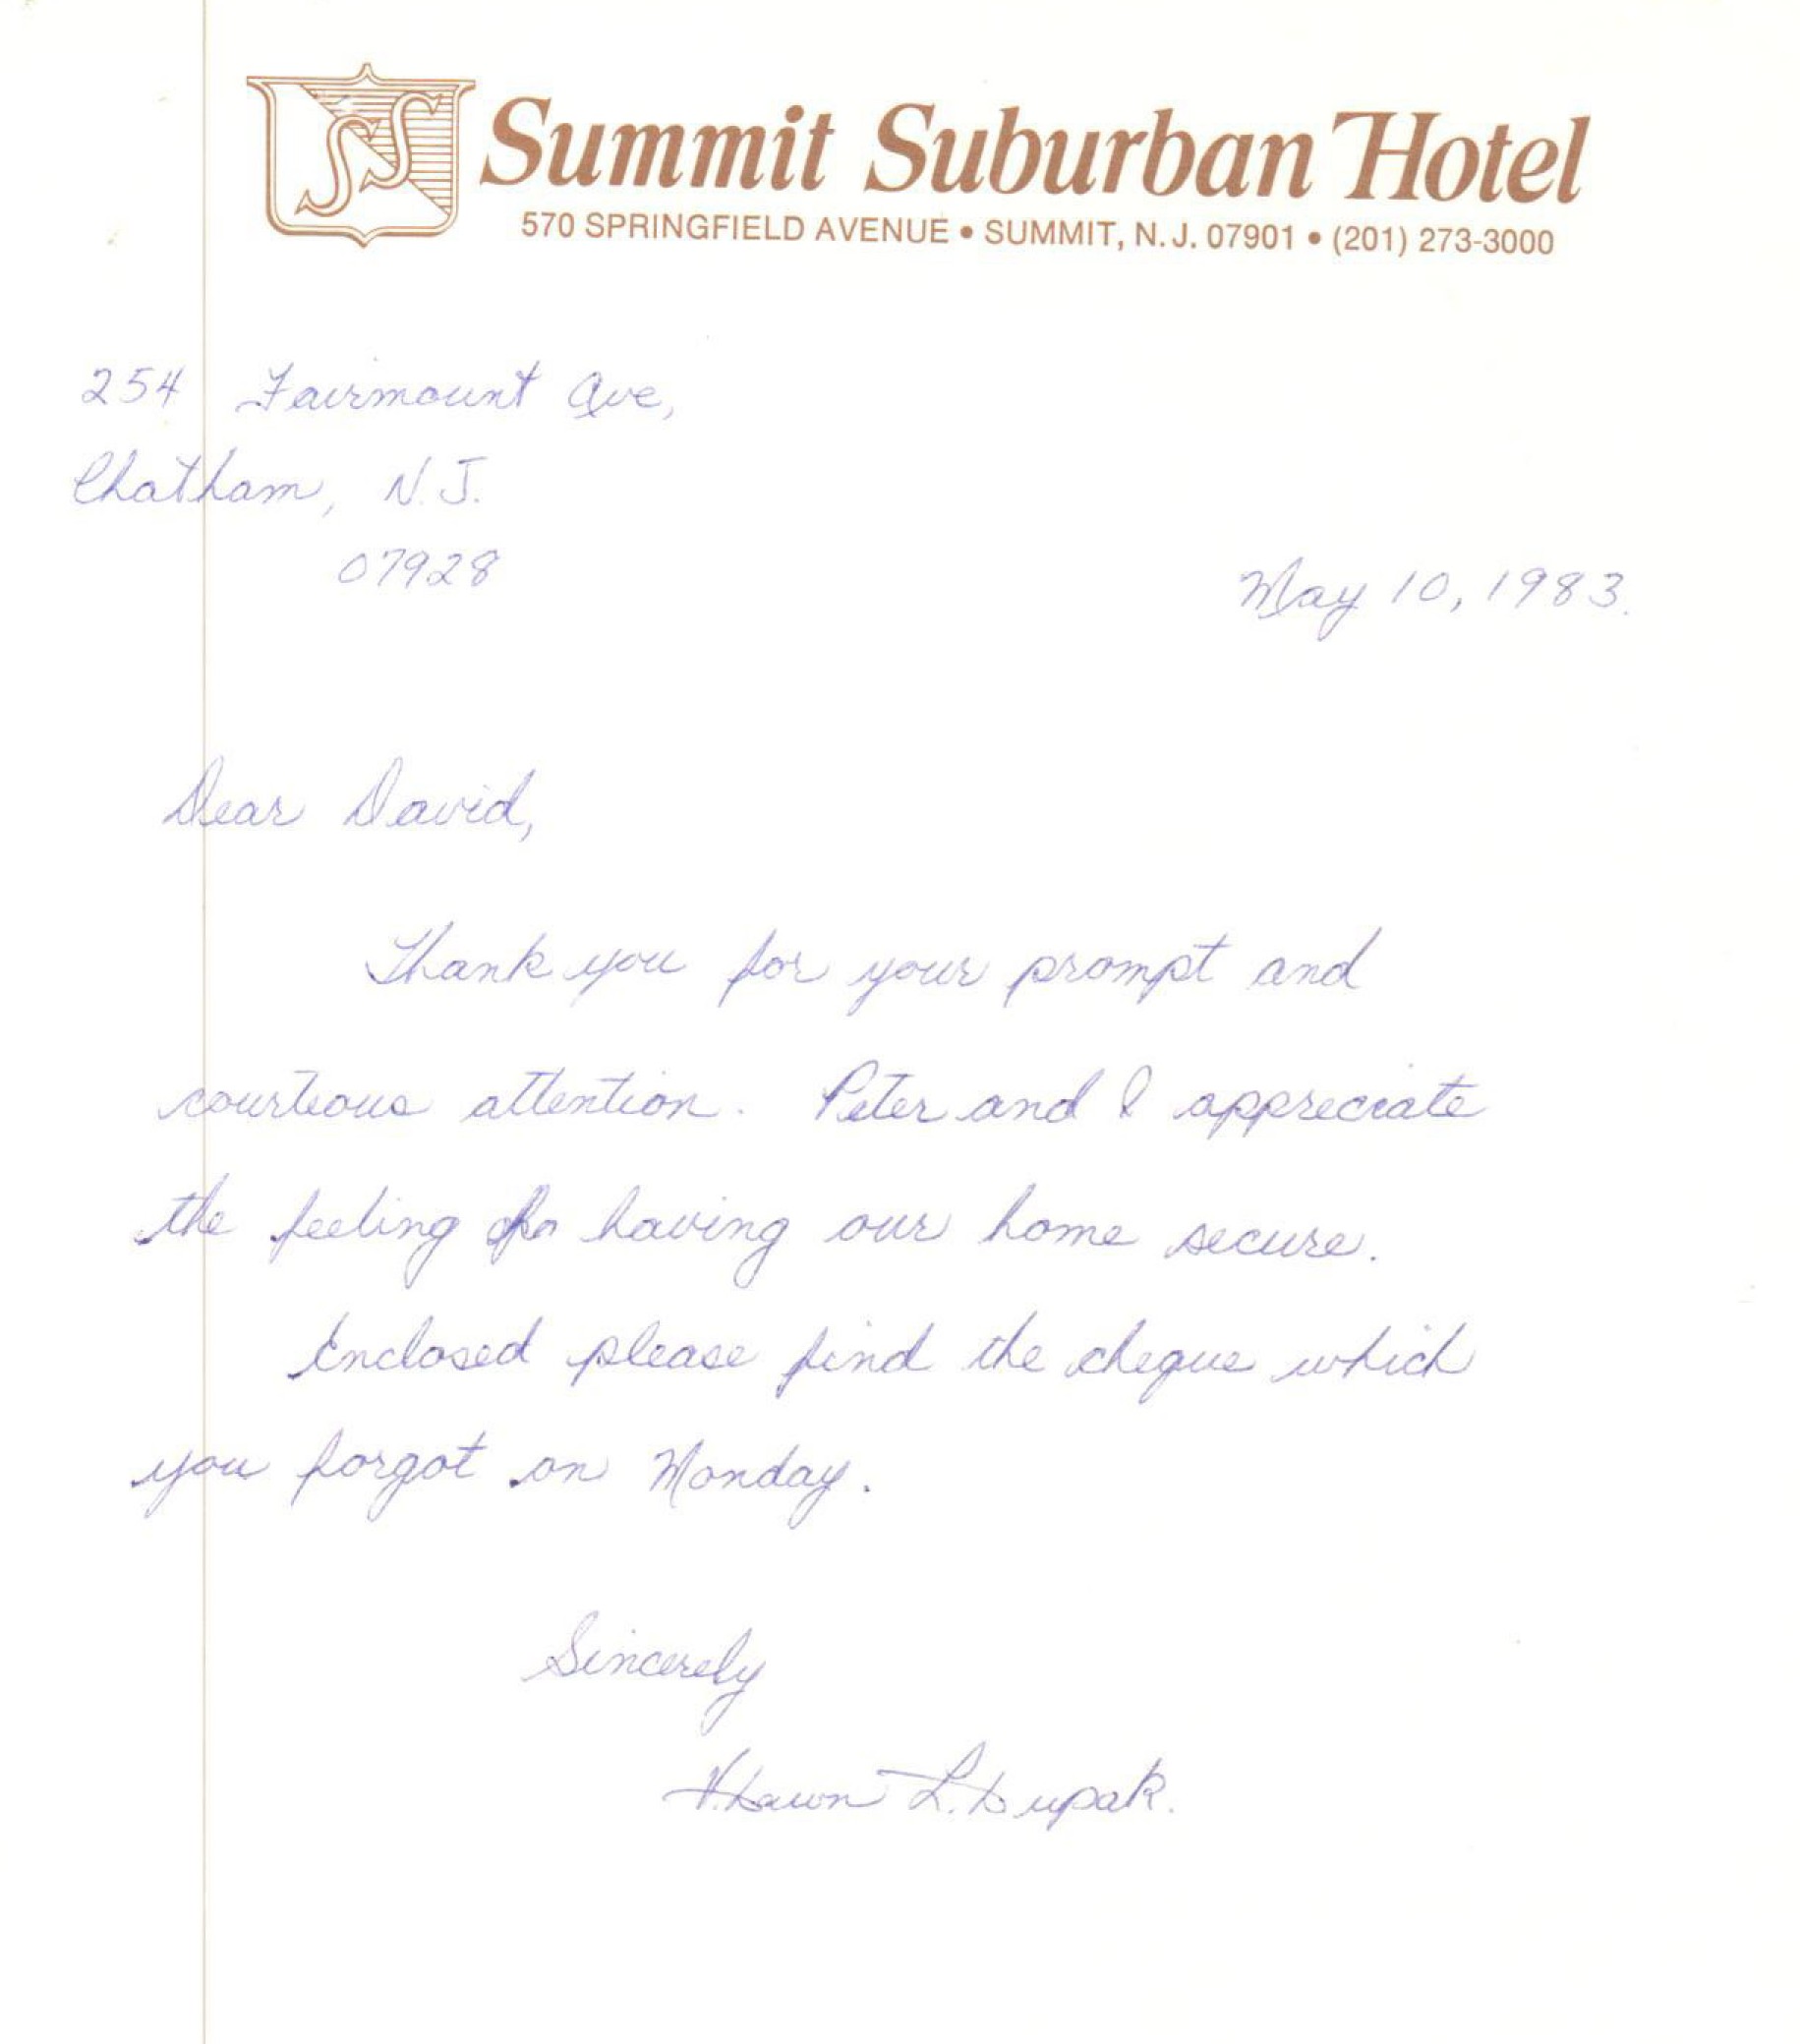 SS Summit Suburban Hotel
570 SPRINGFIELD AVENUE • SUMMIT, N.J. 07901 • (201) 273-3000
254 Fairmount Ave,
Chatham, N.J.
07928
May 10, 1983.
Dear David,
Thank you for your prompt and
courteous attention. Peter and I appreciate
the feeling of having our home secure.
Enclosed please find the cheque which
you forgot on Monday.
Sincerely
L. Dupak.